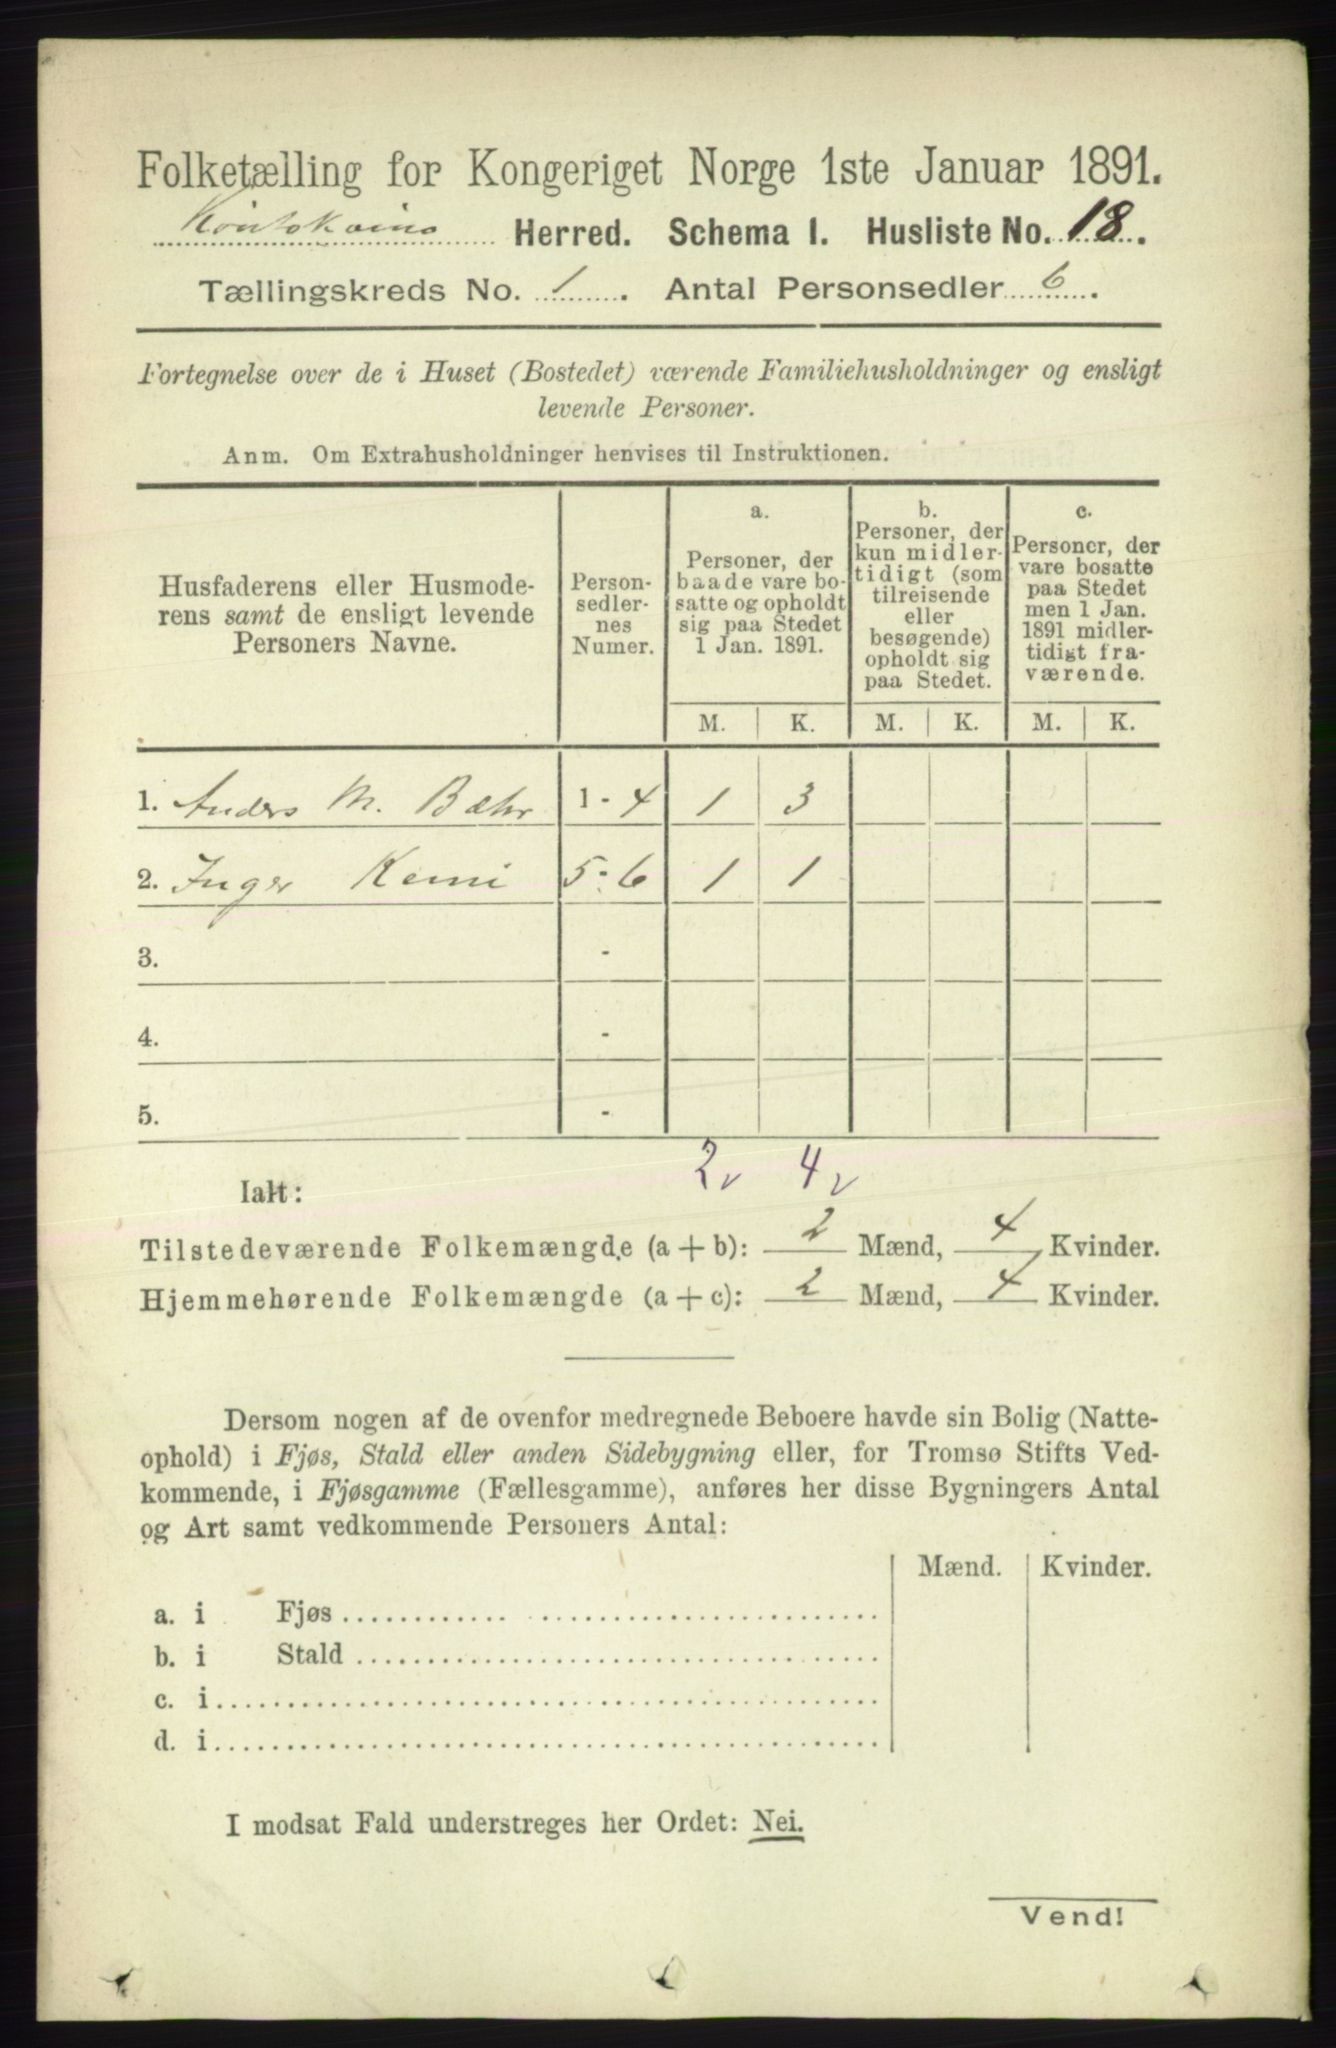 Folketælling for Kongeriget Norge 1ste Januar 1891.
Koutokeino Herred. Schema I. Husliste No. 18.
Tællingskreds No. 1. Antal Personsedler 6.
Fortegnelse over de i Huset (Bostedet) værende Familiehusholdninger og ensligt
levende Personer.
Anm. Om Extrahusholdninger henvises til Instruktionen.
Husfaderens eller Husmode-
rens samt de ensligt levende
Personers Navne.
Person-
sedler-
nes
Numer.
a.
Personer, der
baade vare bo-
satte og opholdt
sig paa Stedet
1 Jan. 1891.
b.
Personer, der
kun midler-
tidigt (som
tilreisende
eller
besøgende)
opholdt sig
paa Stedet.
c.
Personer, der
vare bosatte
paa Stedet
men 1 Jan.
1891 midler-
tidigt fra-
værende.
M. K. M. K. M. K.
1. Anders M. Bæhr 1 - 4 1 3
2. Inger Kemi 5 - 6 1 1
3. -
4. -
5. -
2 v 4 v
Ialt:
Tilstedeværende Folkemængde (a + b): 2 Mænd, 4 Kvinder.
Hjemmehørende Folkemængde (a + c): 2 Mænd, 4 Kvinder.
Dersom nogen af de ovenfor medregnede Beboere havde sin Bolig (Natte-
ophold) i Fjøs, Stald eller anden Sidebygning eller, for Tromsø Stifts Ved-
kommende, i Fjøsgamme (Fællesgamme), anføres her disse Bygningers Antal
og Art samt vedkommende Personers Antal:
Mænd. Kvinder.
a. i Fjøs
b. i Stald
c. i
d. i
I modsat Fald understreges her Ordet: Nei.
Vend!